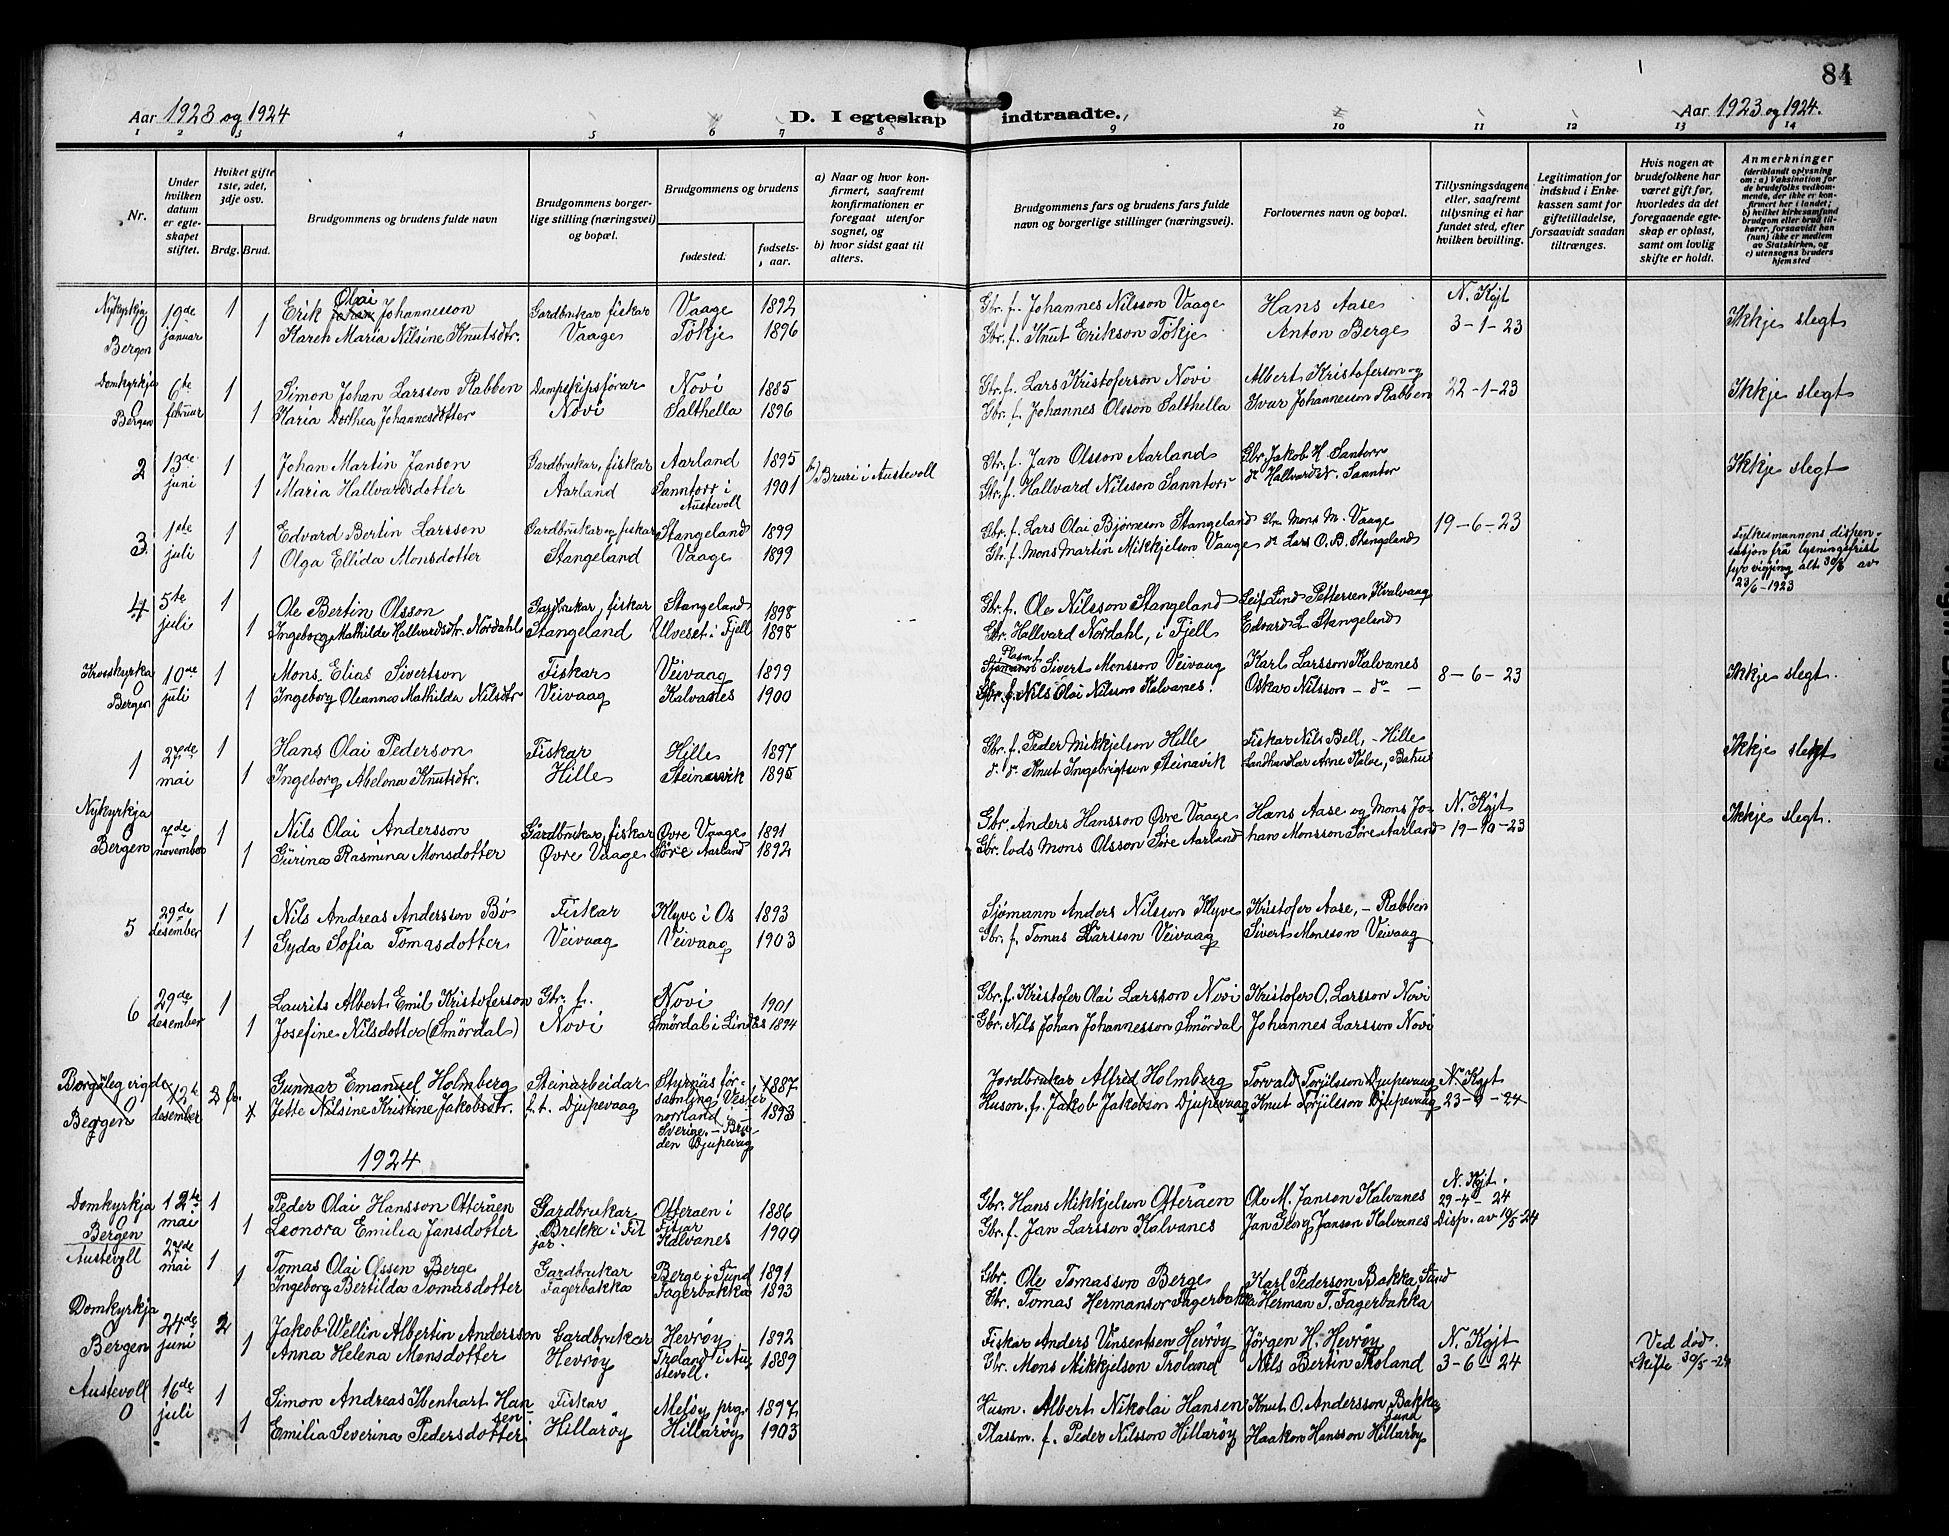 84
Aar 1923 og 1924
D. I egteskap indtraadte.
Aar 1923 og 1924.
1 2 3 4 5 6 7 8 9 10 11 12 13 14
Nr.
Under hvilken datum er egteskapet stiftet.
Hvilket gifte 1ste, 2det, 3dje osv.
Brdg. Brud.
Brudgommens og brudens fulde navn
Brudgommens borgerlige stilling (næringsvei) og bopæl.
Brudgommens og brudens
fødested.
fødselsaar.
a) Naar og hvor konfirmert, saafremt konfirmationen er foregaat utenfor sognet, og
b) hvor sidst gaat til alters.
Brudgommens fars og brudens fars fulde navn og borgerlige stillinger (næringsvei).
Forlovernes navn og bopæl.
Tillysningsdagene eller, saafremt tillysning ei har fundet sted, efter hvilken bevilling.
Legitimation for indskud i Enkekassen samt for giftetilladelse, forsaavidt saadan tiltrænges.
Hvis nogen av brudefolkene har været gift før, hvorledes da det foregaaende egteskap er opløst, samt om lovlig skifte er holdt.
Anmerkninger
(deriblandt oplysning om: a) Vaksination for de brudefolks vedkommende, der ikke er konfirmert her i landet; b) hvilket kirkesamfund brudgom eller brud tilhører, forsaavidt han (hun) ikke er medlem av Statskirken, og c) utensogns bruders hjemsted
Nykyrkja Bergen 19de januar 1 Erik Olai Johannesson Gardbrukar fiskar Vaage 1892 Gbr. f. Johannes Nilsson Vaage Hans Aase N. Kgjt
1 Karen Maria Nilsine Knutsdtr. Vaage Tøkje 1896 Gbr. f. Knut Erikson Tøkje Anton Berge 3-1-23 Ikkje slegt
Domkyrkja 0 Bergen 6te februar 1 Simon Johan Larsson Rabben Dampskipsførar Novi 1885 Gbr. f. Lars Kristoferson Novi Albert Kristoferson og 22-1-23 Ikkje slegt
1 Maria Dorthea Johannesdotter Novi Salthella 1896 Gbr. f. Johannes Olsson Salthella Ivar Johannesson Rabben
2 13de juni 1 Johan Martin Janson Gardbrukar, fiskar Aarland 1895 b) Bruri i Austevoll Gbr. f. Jan Olsson Aarland Gbr. Jakob H. Santorr Ikkje slegt
1 Maria Hallvardsdotter Aarland Sanntorr i Austevoll 1901 Gbr. f. Hallvard Nilsson Sanntorr do Hallvard N. Sanntor
3 1ste juli 1 Edvard Bertin Larsson Gardbrukar og fiskar Stangeland 1899 Gbr. f. Lars Olai Bjørneson Stangeland Gbr. Mons M. Vaage 19-6-23 Fylkesmannens dispensasjon frå lysningsfrist fyr vigjing alt 30/6 av 23/6-1923
1 Olga Ellida Monsdotter Stangeland Vaage 1899 Gbr. f. Mons Martin Mikkjelson Vaage do Lars O. B. Stangeland
4 5te juli 1 Ole Bertin Olsson Gardbrukar, fiskar Stangeland 1898 Gbr. f. Ole Nilsson Stangeland Leif Lind Pettersen Kvalvaag
1 Ingeborg Mathilde Hallvardsdtr. Nordahl Stangeland Ulveset i Fjell 1898 Gbr. Hallvard Nordahl, i Fjell Edvard L. Stangeland
Krosskyrkja 0 Bergen 10de juli 1 Mons Elias Sivertson Fiskar Veivaag 1899 Plasm. f. Sivert Monsson Veivaag Karl Larsson Kalvanes 8-6-23 Ikkje slegt.
1 Ingeborg Oleanna Mathilda Nilsdtr Veivaag Kalvanes 1900 Gbr. f. Nils Olai Nilsson Kalvanes. Oskar Nilsson - do -
1 27de mai 1 Hans Olai Pederson Fiskar Hille 1897 Gbr. f. Peder Mikkjelson Hille Fiskar Nils Bell, - Hille Ikkje slegt
1 Ingeborg Abelona Knutsdtr. Hille Steinarvik 1895 do. do. Knut Ingebrigtson Steinavik Landhandlar Arne Kalve, Bakke
Nykyrkja 0 Bergen 7de november 1 Nils Olai Andersson Gardbrukar, fiskar Øvre Vaage 1891 Gbr. Anders Hansson Øvre Vaage Hans Aase og Mons Jo- N. Kgjt Ikkje slegt.
1 Surina Rasmina Monsdotter Øvre Vaage Søre Aarland 1892 Gbr. lods Mons Olsson Søre Aarland han Monsson Søre Aarland 19-10-23
5 29de desember 1 Nils Andreas Andersson Bø Fiskar Klyve i Os 1893 Sjømann Anders Nilsson Klyve Kristofer Aase, - Rabben
1 Gyda Sofia Tomasdotter Veivaag Veivaag 1903 Gbr. f. Tomas Larsson Veivaag Sivert Monsson Veivaag
6 29de desember 1 Laurits Albert Emil Kristoferson Gbr. f. Novi 1901 Gbr. f. Kristofer Olai Larsson Novi Kristofer O. Larsson Novi
1 Josefine Nilsdotter (Smördal) Novi Smördal i Lindås 1894 Gbr. Nils Johan Johannesson Smördal Johannes Larsson Novi
Borgaleg vigde 0 Bergen 12te desember 2 Gunnar Emanuel Holmberg Steinarbeidar Styrnäs församling Vesternorrland i Sverige. - Bruden Djupevaag 1887 Jordbrukar Alfred Holmberg Torvald Torjilsson Djupevaag N. Kgjt
1 Jette Nilsine Kristine Jakobsdtr. f. t. Djupevaag 1893 Husm. f. Jakob Jakobson Djupevaag Knut Torjilsson Djupevaag
1924
Domkyrkja 0 Bergen 12te mai 1 Peder Olai Hansson Otteråen Gardbrukar Otteraen i Fitjar 1886 Gbr. Hans Mikkjelson Otteråen Ole M. Janson Kalvanes N. Kgjt. 29-4-24
1 Leonora Emilia Jansdotter Brekke i Fitjar. Kalvanes 1900 Gbr. f. Jan Larsson Kalvanes Jan Georg Janson Kalvanes Disp. av 10/5-24
Austevoll 0 27de mai 1 Tomas Olai Olsen Berge Gardbrukar Berge i Sund 1891 Gbr. Ole Tomasson Berge Karl Pederson Bakka, Sund
1 Ingeborg Bertilda Tomasdotter Fagerbakka Fagerbakka 1893 Gbr. Tomas Hermanson Fagerbakka Herman T. Fagerbakka
Domkyrkja 0 Bergen 24de juni 2 Jakob Wellin Albertin Andersson Gardbrukar Hevrøy 1892 Fiskar Anders Vinsentsen Hevrøy Jörgen H. Hevrøy N. Kgjt Ved død.
1 Anna Helena Monsdotter Hevrøy Troland i Austevoll. 1889 Gbr. Mons Mikkjelson Troland Nils Bertin Troland 3-6-24 Skifte 30/5-24
Austevoll 0 16de juli 1 Simon Andreas Menhart Hansen Fiskar Meløy prg. 1897 Husm. Albert Nikolai Hansen Knut O. Andersson, Bakke, Sund
1 Emilia Severina Pedersdotter Hillarøy Hillarøy 1903 Plassm. f. Peder Nilsson Hillarøy Haakon Hansson Hillarøy